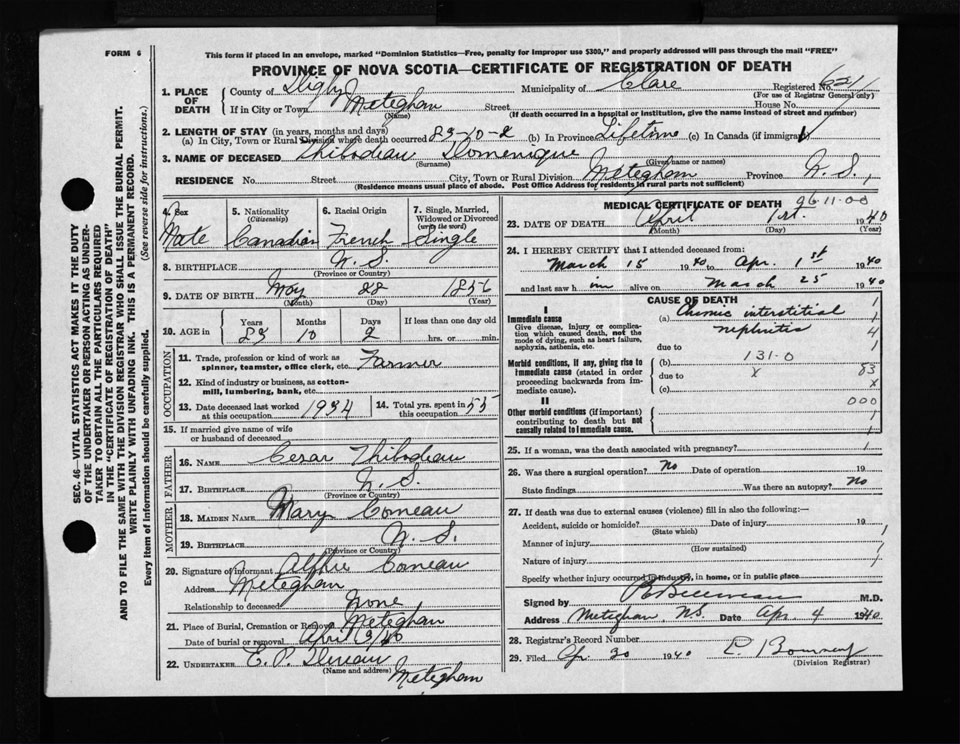 FORM 6
This form if placed in an envelope, marked "Dominion Statistics—Free, penalty for improper use $300," and properly addressed will pass through the mail "FREE"
PROVINCE OF NOVA SCOTIA—CERTIFICATE OF REGISTRATION OF DEATH
1. PLACE OF DEATH
County of Digby Municipality of Clare Registered No. 631
(For use of Registrar General only)
If in City or Town Meteghan Street House No.
(Name) (If death occurred in a hospital or institution, give the name instead of street and number)
2. LENGTH OF STAY (in years, months and days)
(a) In City, Town or Rural Division where death occurred 83-10-2 (b) In Province Lifetime (c) In Canada (if immigrant)
3. NAME OF DECEASED Thibodeau Domenique
(Surname) (Given name or names)
RESIDENCE No. Street City, Town or Rural Division Meteghan Province N.S.
(Residence means usual place of abode. Post Office Address for residents in rural parts not sufficient)
4. Sex 5. Nationality (Citizenship) 6. Racial Origin 7. Single, Married, Widowed or Divorced (write the word)
Male Canadian French Single
8. BIRTHPLACE N.S.
(Province or Country)
9. DATE OF BIRTH May 28 1856
(Month) (Day) (Year)
10. AGE in Years Months Days If less than one day old
83 10 2 hrs. or min.
OCCUPATION
11. Trade, profession or kind of work as spinner, teamster, office clerk, etc. Farmer
12. Kind of industry or business, as cotton-mill, lumbering, bank, etc.
13. Date deceased last worked at this occupation 1934 14. Total yrs. spent in this occupation 55
15. If married give name of wife or husband of deceased
FATHER
16. NAME Cesar Thibodeau
17. BIRTHPLACE N.S.
(Province or Country)
MOTHER
18. MAIDEN NAME Mary Comeau
19. BIRTHPLACE N.S.
(Province or Country)
20. Signature of informant Alphie Comeau
Address Meteghan
Relationship to deceased None
21. Place of Burial, Cremation or Removal Meteghan
Date of burial or removal April 3/40
22. UNDERTAKER E. P.
(Name and address) Meteghan
MEDICAL CERTIFICATE OF DEATH 96-11-00
23. DATE OF DEATH April 1st. 1940
(Month) (Day) (Year)
24. I HEREBY CERTIFY that I attended deceased from:
March 15 1940 to Apr. 1st 1940
and last saw him alive on March 25 1940
CAUSE OF DEATH
I
Immediate cause (a) Chronic interstitial 1
Give disease, injury or complication which caused death, not the mode of dying, such as heart failure, asphyxia, asthenia, etc.
nephritis 4
due to 1
Morbid conditions, if any, giving rise to immediate cause (stated in order proceeding backwards from immediate cause).
(b) 131-0
due to x 83
(c) x
II 000
Other morbid conditions (if important) contributing to death but not causally related to immediate cause. 1
1
25. If a woman, was the death associated with pregnancy? 1
26. Was there a surgical operation? No Date of operation 19
State findings Was there an autopsy? No
27. If death was due to external causes (violence) fill in also the following:—
Accident, suicide or homicide? Date of injury 19
(State which)
Manner of injury
(How sustained)
Nature of injury
Specify whether injury occurred in industry, in home, or in public place
Signed by M.D.
Address Meteghan N.S. Date Apr 4 1940
28. Registrar's Record Number
29. Filed Apr. 30 1940
(Division Registrar)
SEC. 46—VITAL STATISTICS ACT MAKES IT THE DUTY
OF THE UNDERTAKER OR PERSON ACTING AS UNDER-
TAKER TO OBTAIN ALL THE PARTICULARS REQUIRED
IN THE "CERTIFICATE OF REGISTRATION OF DEATH"
AND TO FILE THE SAME WITH THE DIVISION REGISTRAR WHO SHALL ISSUE THE BURIAL PERMIT.
WRITE PLAINLY WITH UNFADING INK. THIS IS A PERMANENT RECORD.
Every item of information should be carefully supplied. (See reverse side for instructions.)